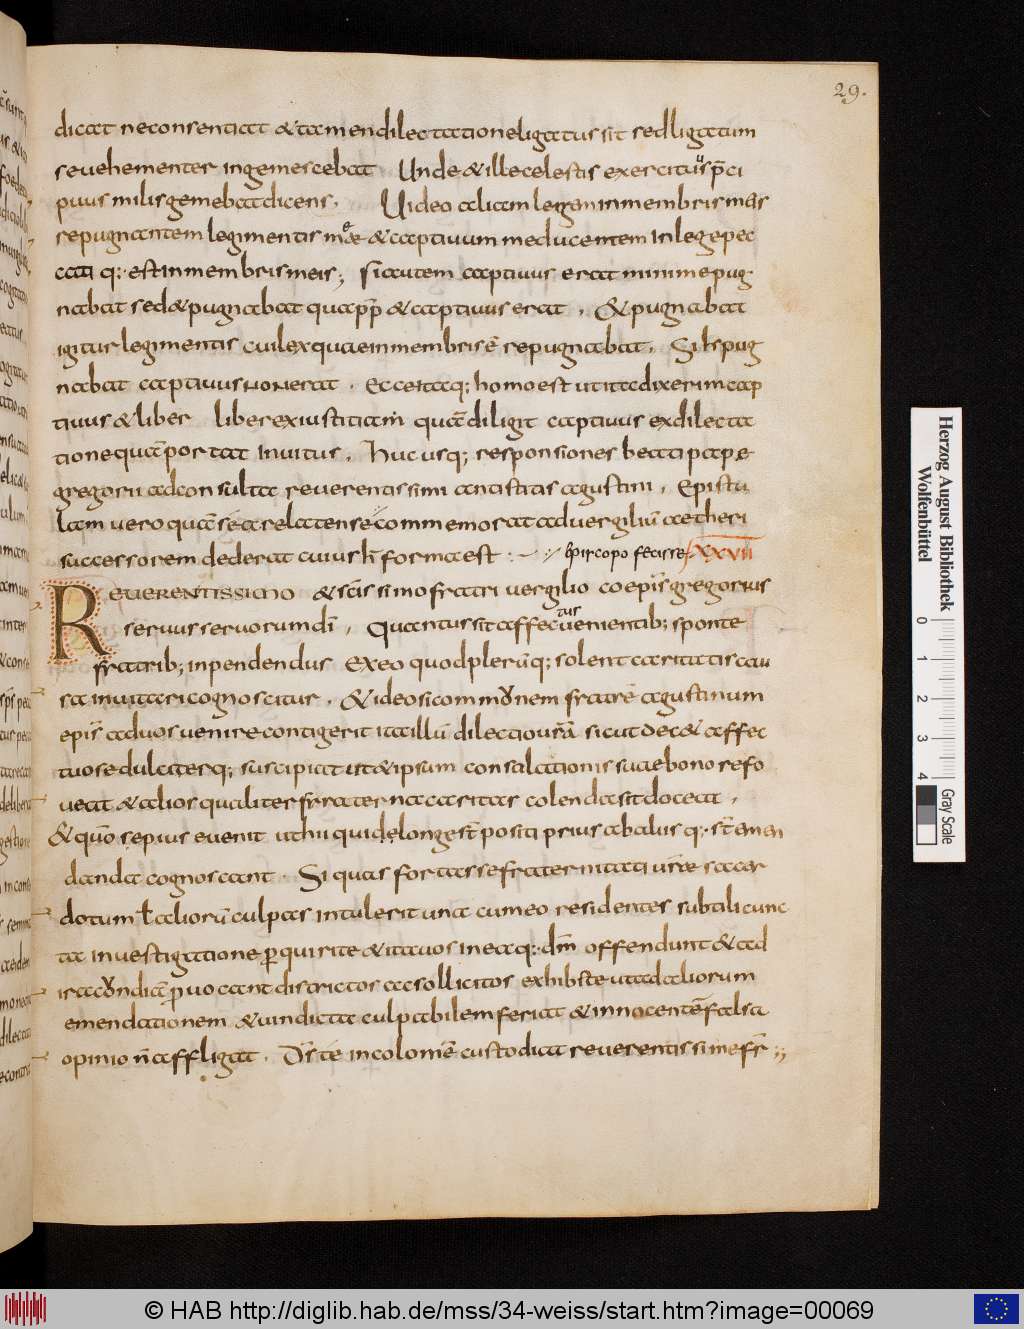 29.
dicat ne consentiat & tamen dilectatione ligatus sit sed ligatum
se vehementer ingemescebat Unde & ille celestis exercitus p̄ci
puus milis gemebat dicens. Uideo aliam legem in membris meis
repugnantem legi mentis meae & captivum me ducentem in lege pec
cati q: est in membris meis; si autem captivus erat minime pug
nabat sed & pugnabat quapp̄ & captivus erat. & pugnabat
igitur legi mentis cui lex quae in membris ē repugnabat. Si h̄ pug
nabat captivus non erat. Ecce itaq; homo est ut ita dixerim cap
tivus & liber liber ex iustitiam quā diligit captivus ex dilecta
tione quā portat invitus. Huc usq; responsiones beati papę
gregorii ad consulta reverentissimi antistitis agustini. Epistu
lam vero quā se arelatense commemorat ad vergiliū aetheri
successorem dederat cuius h̄ forma est :~ ep̄iscopo fecisse XXVII
REVERENTISSIMO & sc̄issimo fratri vergilio coep̄is gregorius
servus servorum dī. Quantus sit affectus venientib; sponte
fratrib; inpendendus Ex eo quod plerūq; solent caritatis cau
sa invitari cognoscitur. & ideo si commonem fratrē agustinum
ep̄is ad vos venire contigerit ita illū dilectio ur̄ā sicut dec& affec
tuose dulciterq; suscipiat ut & ipsum consolationis suae bono refo
veat & alios qualiter fraterna caritas colenda sit doceat.
& quō sepius evenit ut hii qui de longe st̄ positi prius ab alus q: st̄ aman
danda cognoscant. Si quas fortasse fraternitati ur̄ae sacer
dotum ł aliorū culpas intulerit una cum eo residentes subtili cunc
ta investigatione perquirite & ita vos in ea q: dm̄ offendunt & ad
iracondiā p̄vocant districtos ac sollicitos exhibete ut ad aliorum
emendationem & vindicta culpabilem feriat & innocentē falsa
opinio n̄ affligat. Ds̄ te incolomē custodiat reverentissime fr̄;;
Herzog August Bibliothek
Wolfenbüttel
0 1 2 3 4
Gray Scale
© HAB http://diglib.hab.de/mss/34-weiss/start.htm?image=00069